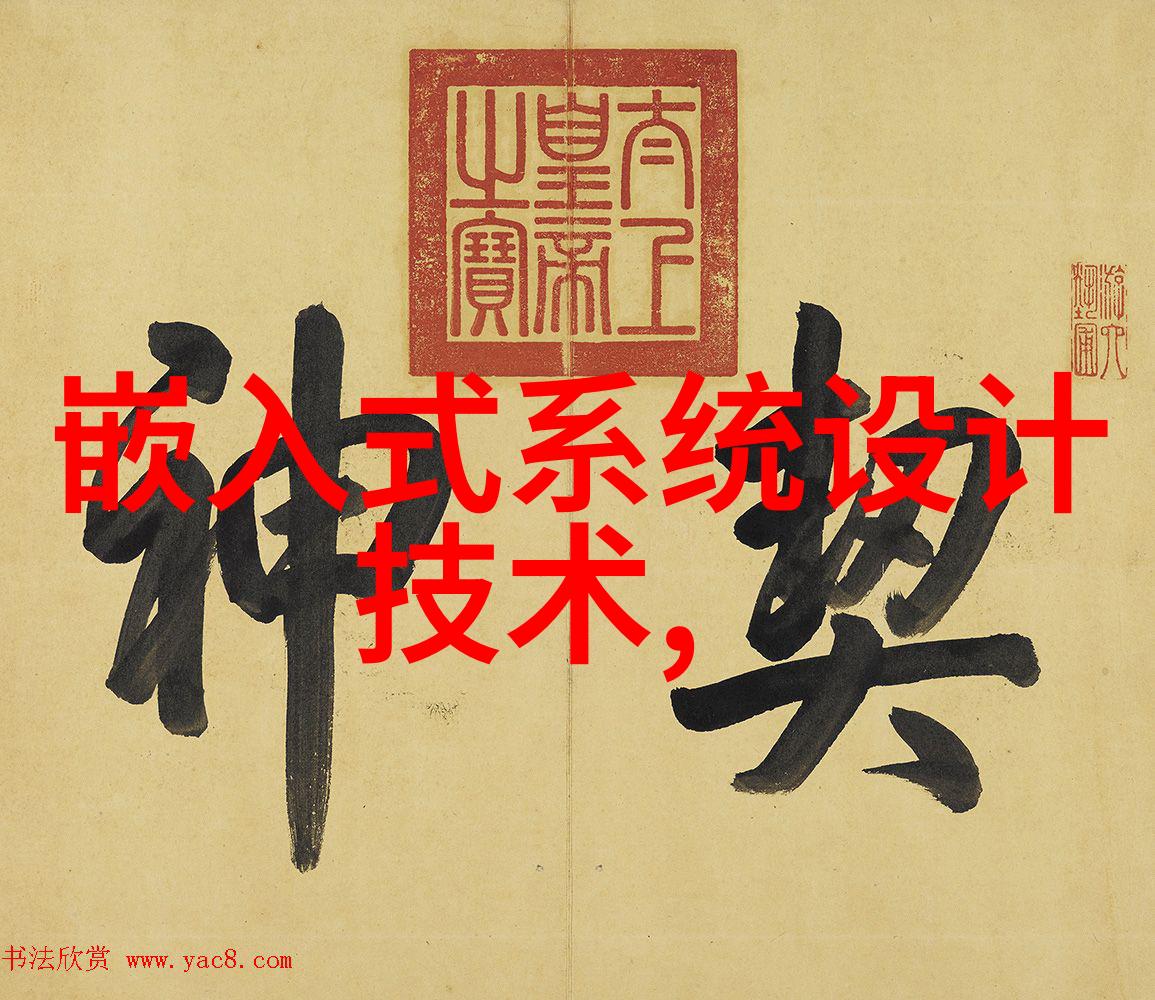 太上
皇帝
之寶
游六
藝圃
嵌入式系统设计
技术，
契神
书法欣赏 www.yac8.com